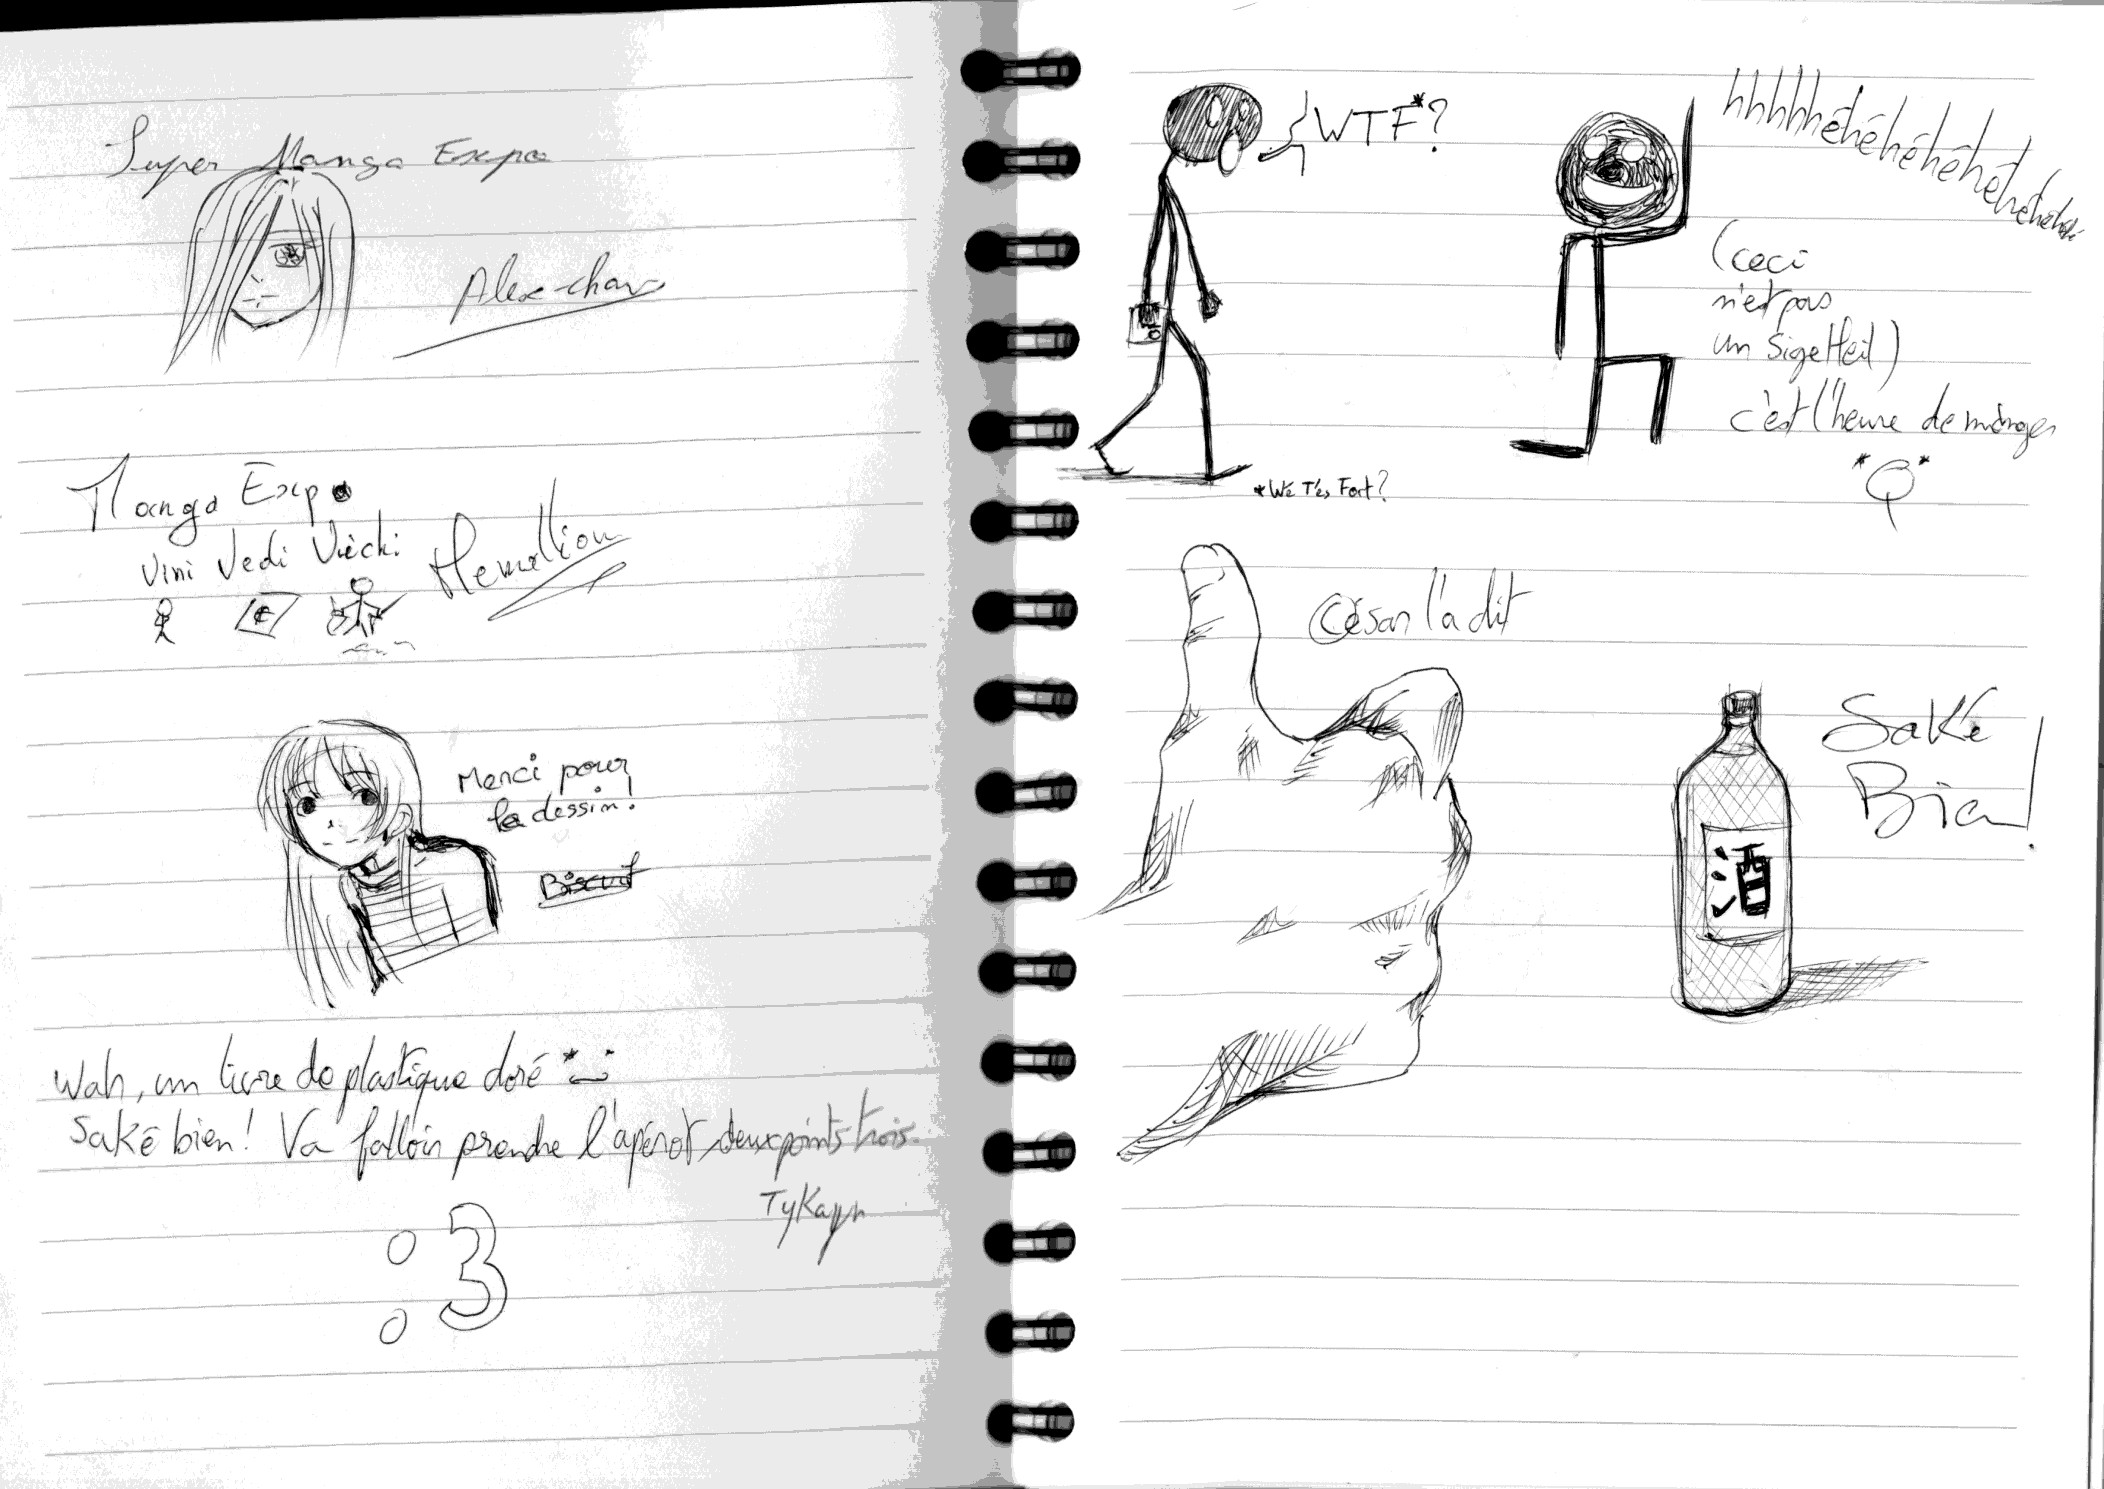 Super Manga Expo
Alex-chan
Manga Expo
Vini Vedi Vichi
Merci pour
le dessin!
Biscuit
Wah, un livre de plastique doré
Saké bien! Va falloir prendre l'apérot deux points trois.
:3
WTF*?
*Wé T'es Fort?
hhhhhéhéhéhéhéhéhéhéhéhé
(ceci
n'est pas
un Sige Heil)
c'est l'heure de
©ésar l'a dit
Saké
Bien!
酒